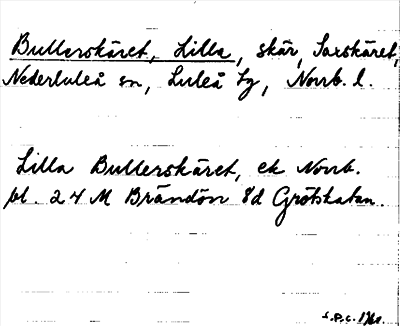 Bullerskäret, Lilla, skär, Saxskäret,
Nederluleå sn, Luleå tg, Norrb. l.
Lilla Bullerskäret, ek Norrb.
bl. 24 M Brändön 8d Grötskatan.
S.P.C. 1961.